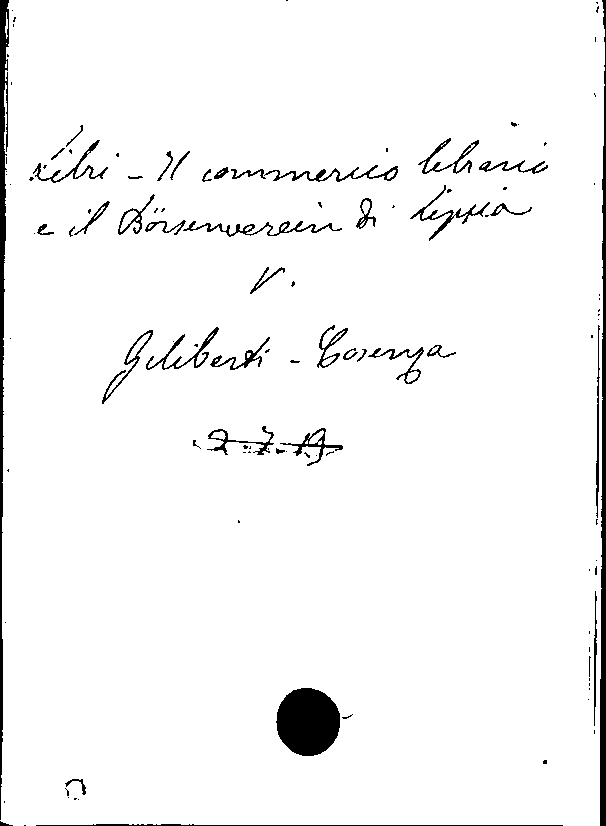 Libri - Il commercio librario
e il Börsenverein di Lipsia
V.
Geliberti - Cosenza
2-7-19